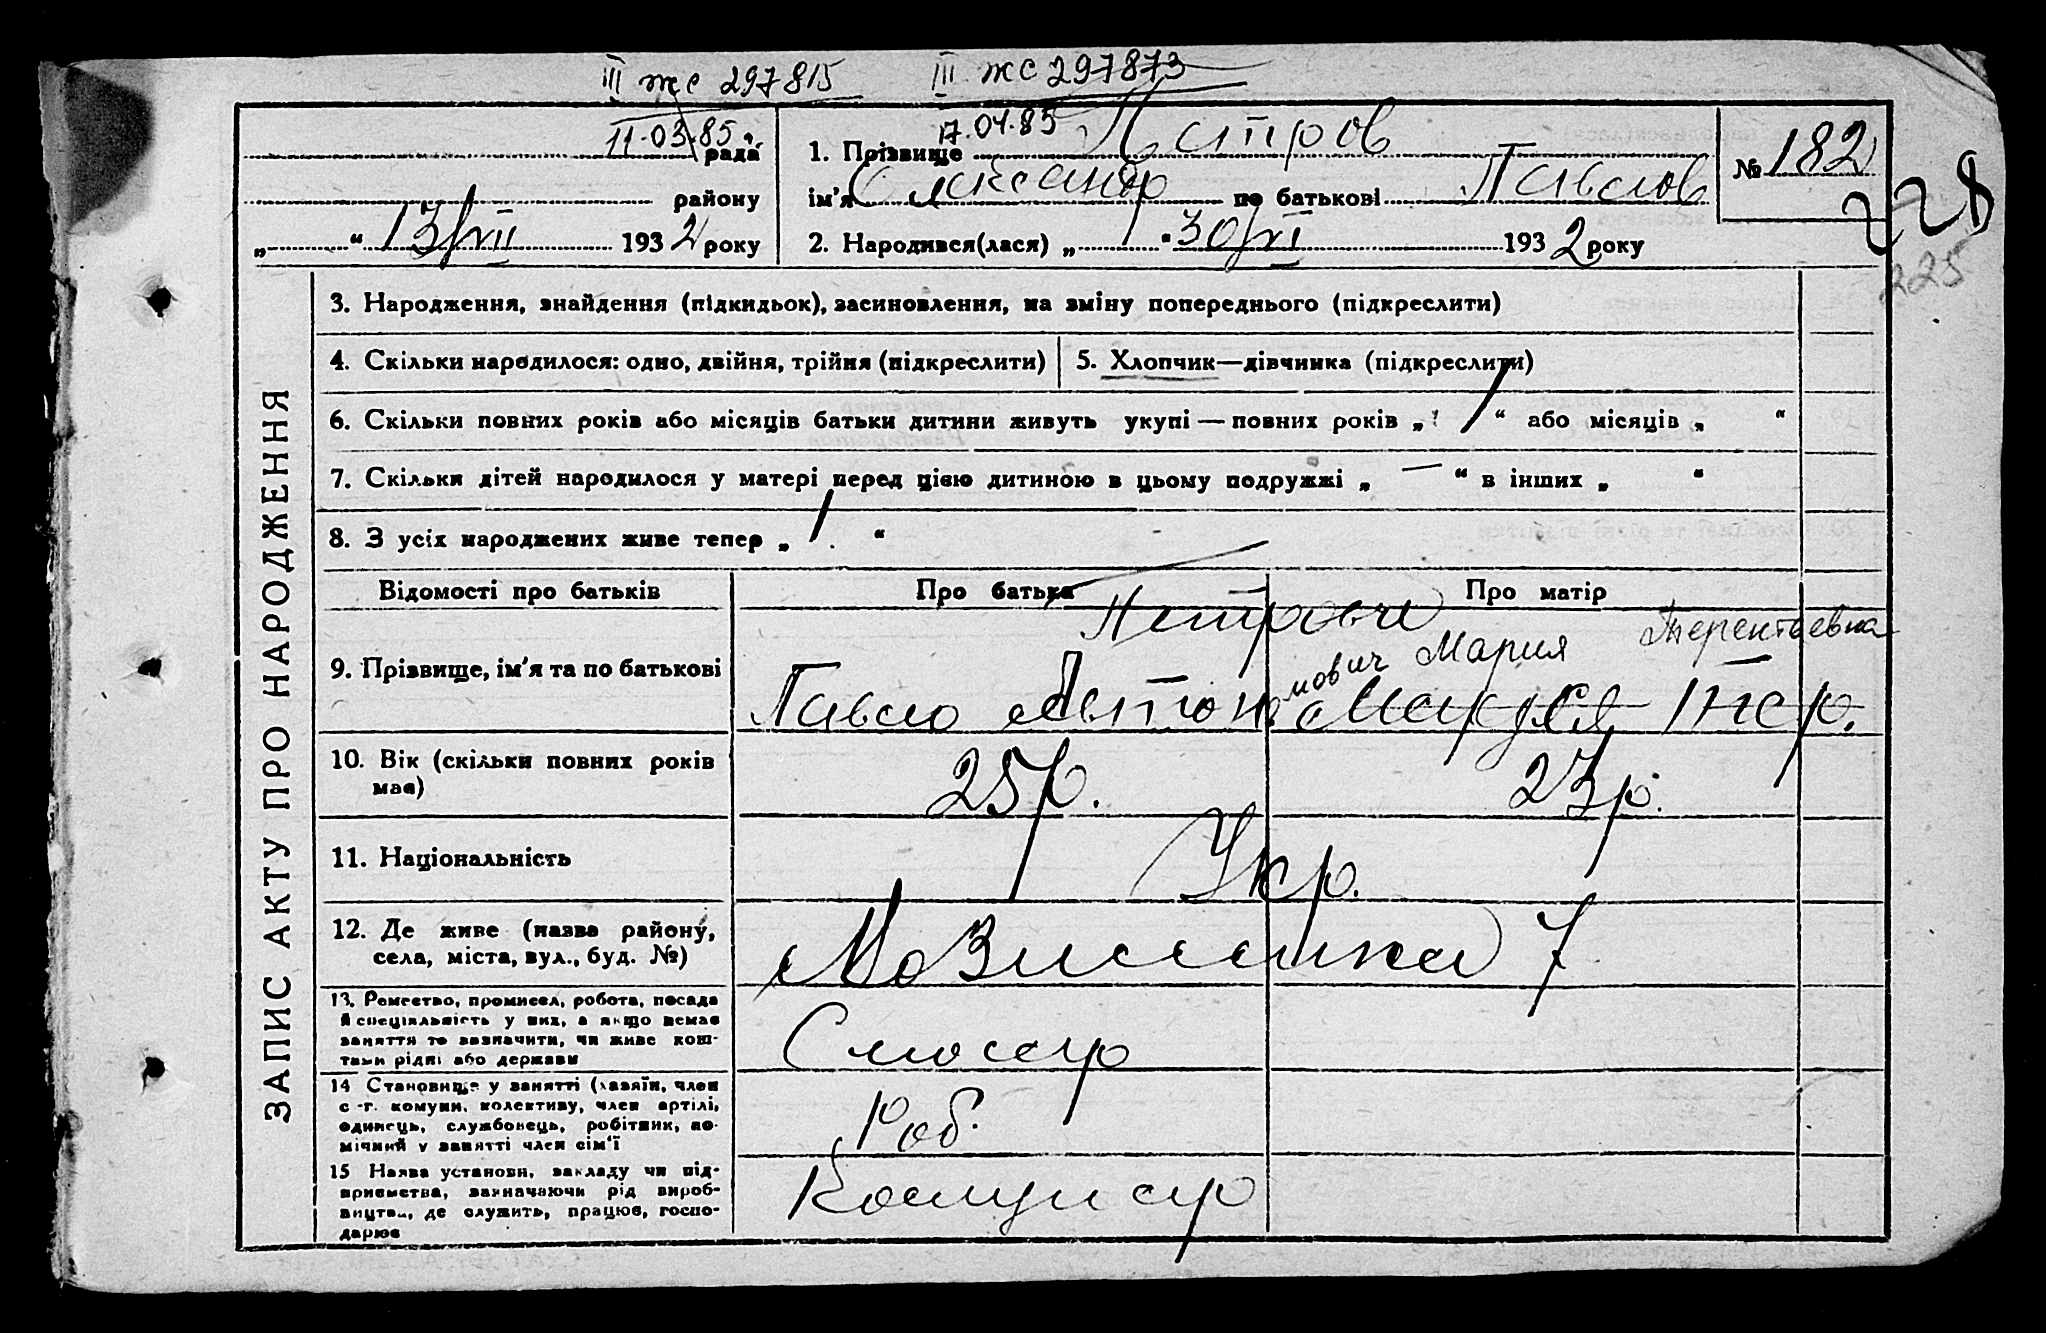 III жс 297815 III жс 297873
11.03.85 17.04.85
рада
району
„ “ 13/VII 1932 року
1. Прізвище Петров
ім'я Олександр по батькові Павлов
2. Народився(лася) „ “ 30/VI 1932 року
№ 182
228
225
ЗАПИС АКТУ ПРО НАРОДЖЕННЯ
3. Народження, знайдення (підкидьок), засиновлення, на зміну попереднього (підкреслити)
4. Скільки народилося: одно, двійня, трійня (підкреслити)
5. Хлопчик—дівчинка (підкреслити)
6. Скільки повних років або місяців батьки дитини живуть укупі — повних років „ 1 “ або місяців „ “
7. Скільки дітей народилося у матері перед цією дитиною в цьому подружжі „ — “ в інших „ “
8. З усіх народжених живе тепер „ 1 “
Відомості про батьків Про батька Про матір
9. Прізвище, ім'я та по батькові
Петрови
Мария Терентьевна
Павло Автономович Маруся Тер.
10. Вік (скільки повних років має) 25 р. 23 р.
11. Національність Укр.
12. Де живе (назва району, села, міста, вул., буд. №) 7
13. Ремество, промисел, робота, посада й спеціяльність у них, а якщо немає заняття то зазначити, чи живе коштами рідні або держави
Слюсар
14 Становище у занятті (хазяїн, член с.-г. комуни, колективу, член артілі, одинець, службовець, робітник, помічний у занятті член сім'ї
Роб.
15 Назва установи, закладу чи підприємства, зазначаючи рід виробництва, де служить, працює, господарює